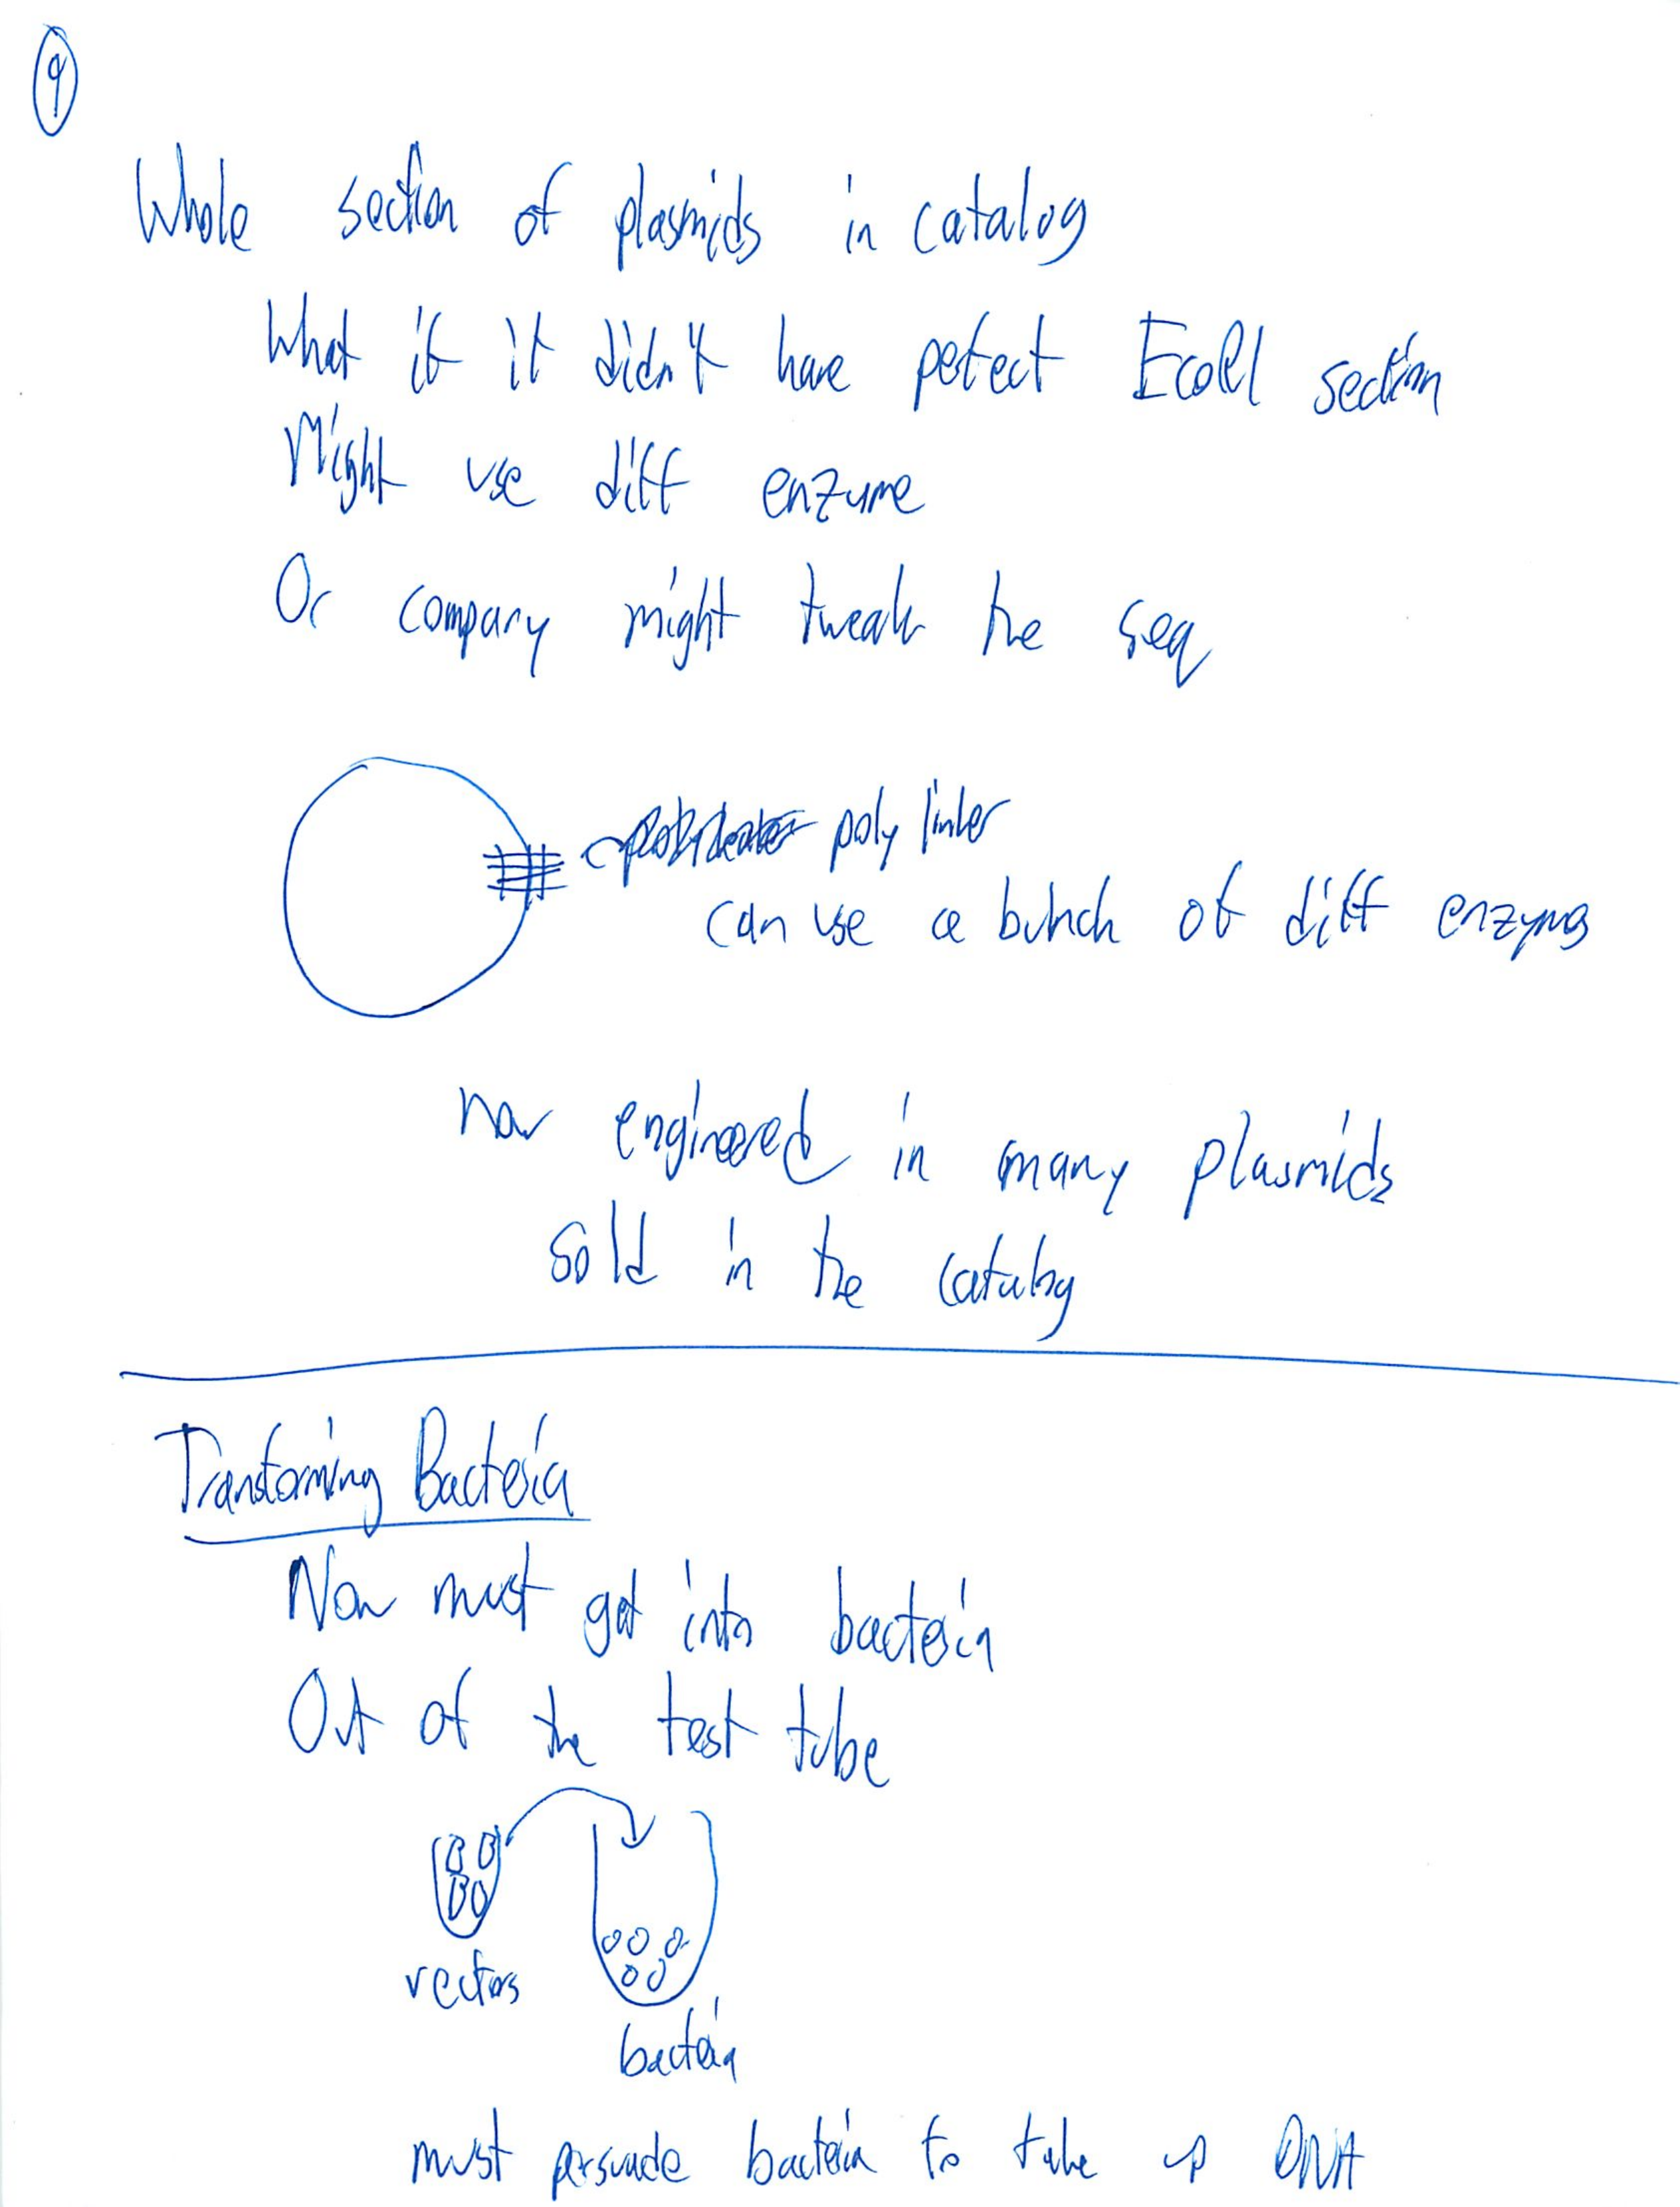 9
Whole section of plasmids in catalog
What if it didn't have pefect EcoRI section
Might use diff enzyme
Or company might tweak the seq
poly linker
can use a bunch of diff enzyms
now engineered in many plasmids
sold in the catalog
Transforming Bacteria
Now must get into bacteria
Out of the test tube
vectors
bacteria
must persuade bacteria to take up DNA